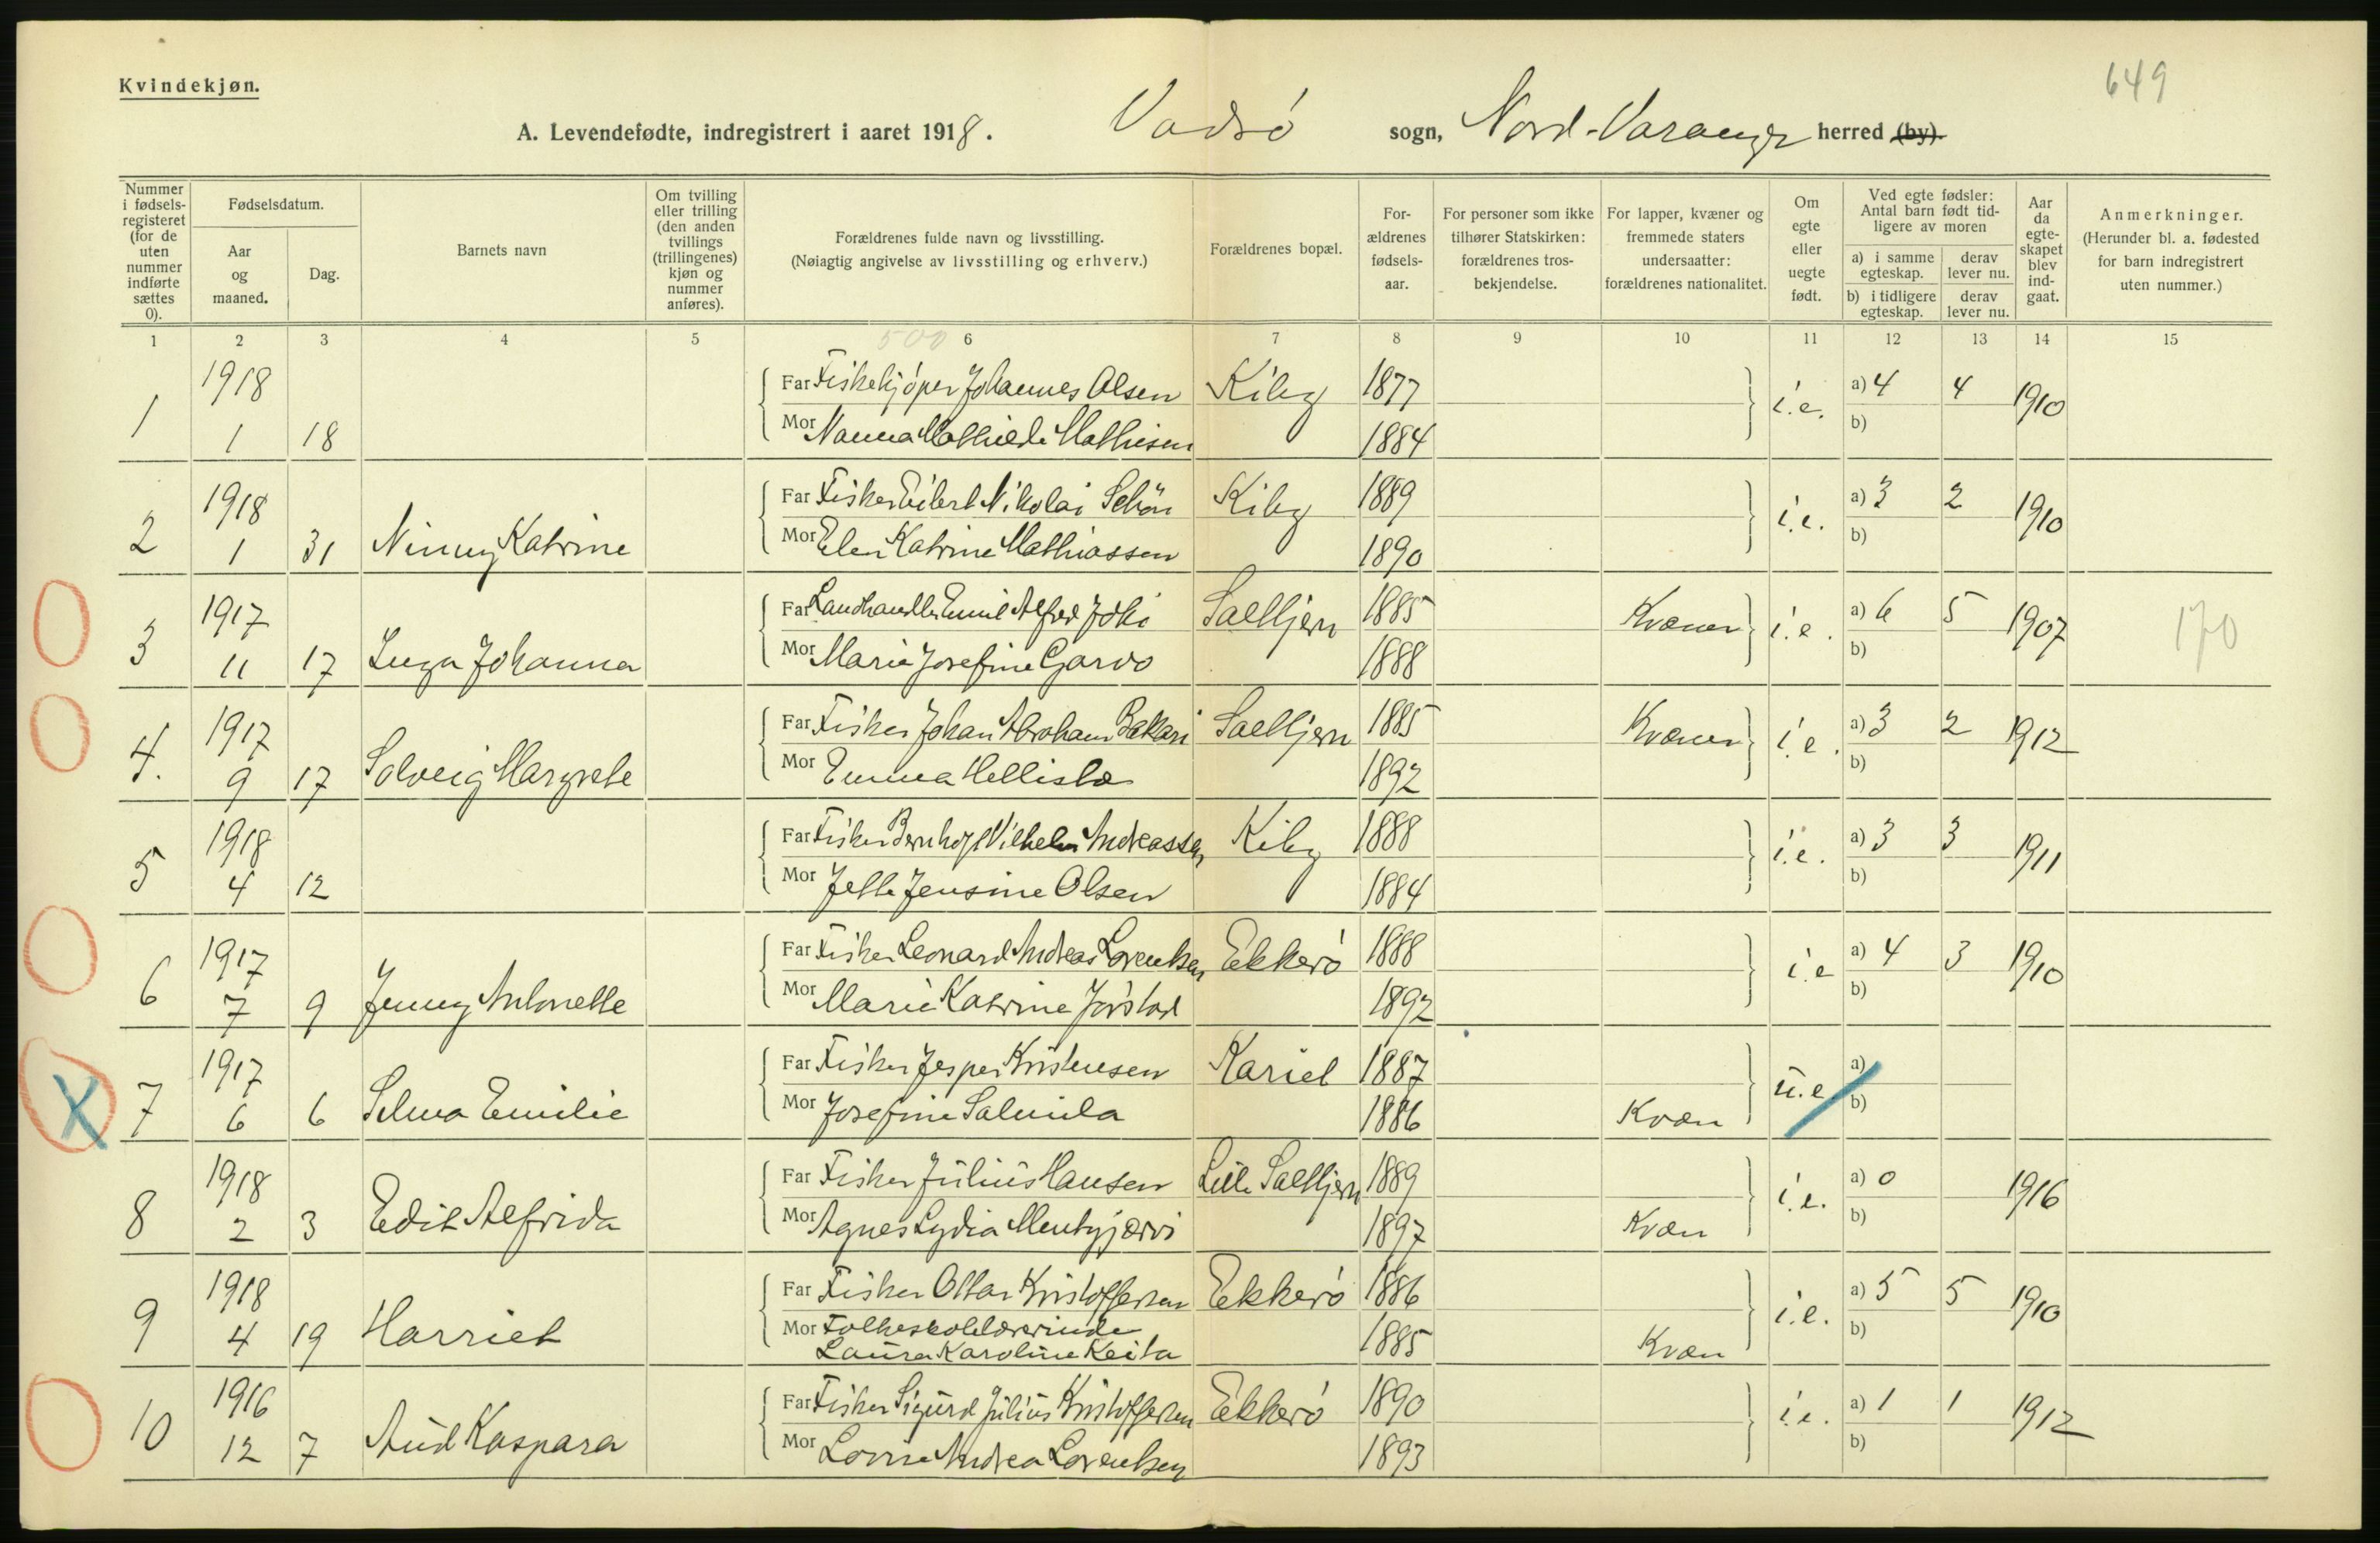 649
Kvindekjøn.
A. Levendefødte, indregistrert i aaret 1918. Vadsø sogn, Nord-Varanger herred (by).
Nummer i fødselsregisteret (for de uten nummer indførte sættes 0).
Fødselsdatum.
Aar og maaned.
Dag.
Barnets navn
Om tvilling eller trilling (den anden tvillings (trillingenes) kjøn og nummer anføres).
Forældrenes fulde navn og livsstilling.
(Nøiagtig angivelse av livsstilling og erhverv.)
Forældrenes bopæl.
Forældrenes fødselsaar.
For personer som ikke tilhører Statskirken: forældrenes trosbekjendelse.
For lapper, kvæner og fremmede staters undersaatter: forældrenes nationalitet.
Om egte eller uegte født.
Ved egte fødsler: Antal barn født tidligere av moren
a) i samme egteskap. derav lever nu.
b) i tidligere egteskap. derav lever nu.
Aar da egteskapet blev indgaat.
Anmerkninger.
(Herunder bl. a. fødested for barn indregistrert uten nummer.)
1 2 3 4 5 6 7 8 9 10 11 12 13 14 15
500
1 1918 1 18 Far Fiskekjøper Johannes Olsen Kiby 1877 i.e. a) 4 4 1910
Mor Nanna Mathilde Mathisen 1884 b)
2 1918 1 31 Ninny Katrine Far Fisker Eilert Nikolai Schön Kiby 1889 i.e. a) 3 2 1910
Mor Elen Katrine Mathiassen 1890 b)
3 1917 11 17 Inga Johanna Far Landhandler Emil Alfred Joki Saltjern 1885 Kvæner i.e. a) 6 5 1907 170
Mor Marie Josefine Garvo 1888 b)
4. 1917 9 17 Solveig Margrete Far Fisker Johan Abraham Bakkari Saltjern 1885 Kvæner i.e. a) 3 2 1912
Mor Emma Hellista 1892 b)
5 1918 4 12 Far Fisker Bernhoft Vilhelm Andreassen Kiby 1888 i.e. a) 3 3 1911
Mor Jette Jensine Olsen 1884 b)
6 1917 7 9 Jenny Antonette Far Fisker Leonard Andreas Lorentsen Ekkerø 1888 i.e a) 4 3 1910
Mor Marie Katrine Jørstad 1892 b)
X 7 1917 6 6 Selma Emilie Far Fisker Jesper Kristensen Kariel 1887 u.e a)
Mor Josefine Salmila 1886 Kvæn b)
8 1918 2 3 Edit Alfrida Far Fisker Julius Hansen Lille Saltjern 1889 i.e. a) 0 1916
Mor Agnes Lydia Mentyjærvi 1897 Kvæn b)
9 1918 4 19 Harriet Far Fisker Ottar Kristoffersen Ekkerø 1886 i.e. a) 5 5 1910
Mor Folkeskolelærerinde
Laura Karoline Keita 1885 Kvæn b)
10 1916 12 7 Aud Kaspara Far Fisker Sigurd Julius Kristoffersen Ekkerø 1890 i.e. a) 1 1 1912
Mor Lovise Andrea Lorentsen 1893 b)